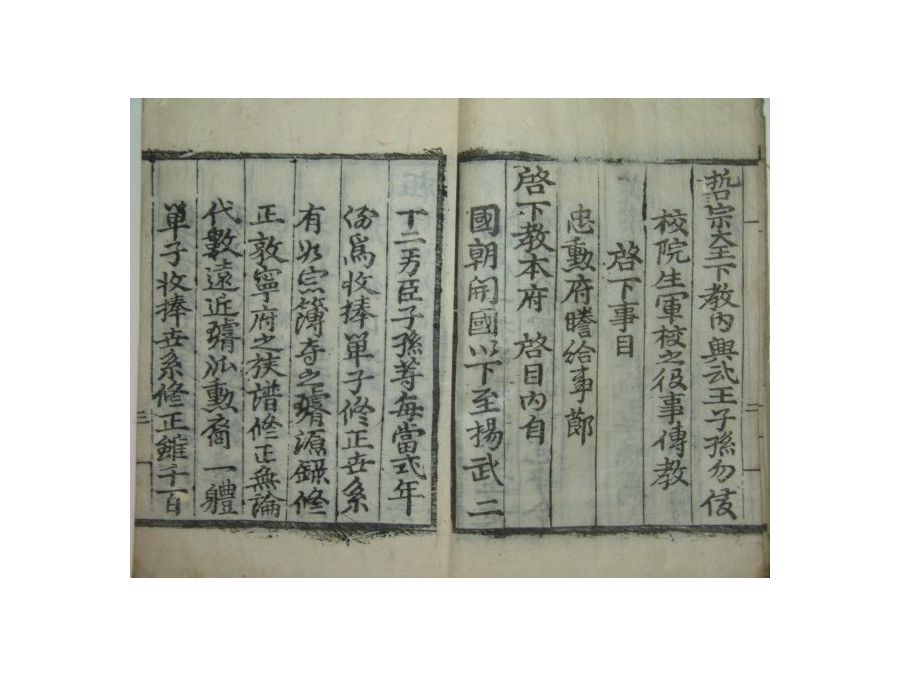 哲宗大王下敎內興武王子孫勿侵
校院生軍校之役事傳敎
啓下事目
忠勳府謄給事鄭
啓下敎本府 啓目內自
國朝開國以下至揚武二
十二功臣子孫等每當式年
例爲收捧單子修正世系
有如宗簿寺之璿源錄修
正敦寧府之族譜修正無論
代數遠近璿派勳裔一體
單子收捧世系修正雖千百
二
三